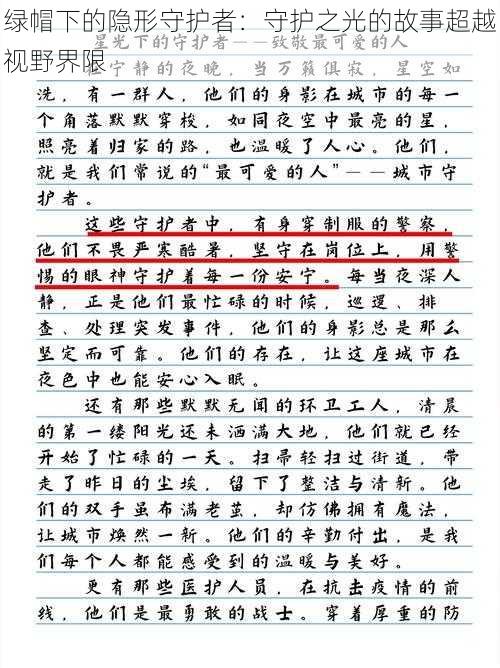 绿帽下的隐形守护者：守护之光的故事超越视野界限
星光下的守护者——致敬最可爱的人
在宁静的夜晚，当万籁俱寂，星空如
洗，有一群人，他们的身影在城市的每一
个角落默默穿梭，如同夜空中最亮的星，
照亮着归家的路，也温暖了人心。他们，
就是我们常说的“最可爱的人”——城市守
护者。
这些守护者中，有身穿制服的警察，
他们不畏严寒酷暑，坚守在岗位上，用警
惕的眼神守护着每一份安宁。每当夜深人
静，正是他们最忙碌的时候，巡逻、排
查、处理突发事件，他们的身影总是那么
坚定而可靠。他们的存在，让这座城市在
夜色中也能安心入眠。
还有那些默默无闻的环卫工人，清晨
的第一缕阳光还未洒满大地，他们就已经
开始了忙碌的一天。扫帚轻扫过街道，带
走了昨日的尘埃，留下了整洁与清新。他
们的双手虽布满老茧，却仿佛拥有魔法，
让城市焕然一新。他们的辛勤付出，是我
们每个人都能感受到的温暖与美好。
更有那些医护人员，在抗击疫情的前
线，他们是最勇敢的战士。穿着厚重的防